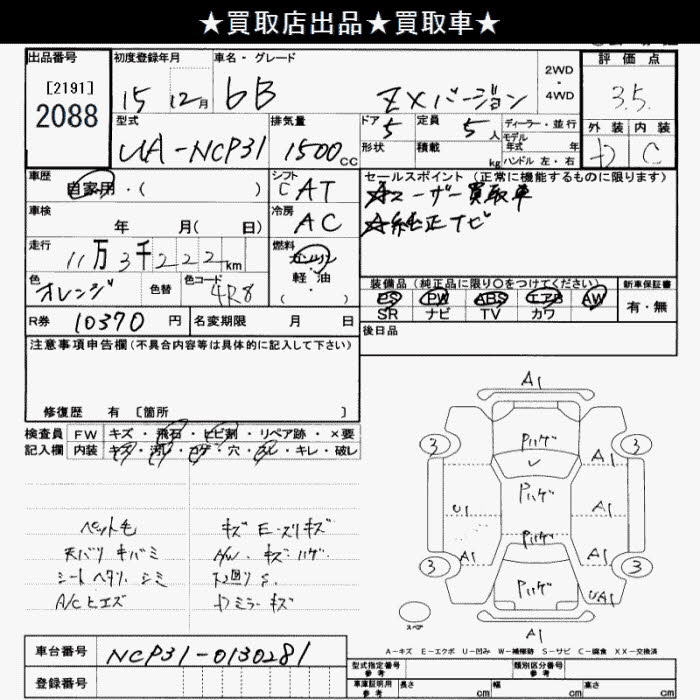 ★買取店出品★買取車★
出品番号 初度登録年月 車名・グレード 2WD・4WD 評価点
[2191]
2088
15 12月 bB ZXバージョン 3.5
型式 排気量 ドア 5 定員 5人 ディーラー・並行 外装 内装
UA-NCP31 1500cc 形状 積載 kg モデル年式 年 D C
ハンドル 左・右
車歴 自家用・( ) シフト CAT セールスポイント (正常に機能するものに限ります)
☆ユーザー買取車
車検 年 月( 日) 冷房 AC ☆純正ナビ
走行 11万3千222km 燃料 ガソリン・軽油・( )
色 オレンジ 色替 色コード 4R8 装備品(純正品に限り○をつけてください) 新車保証書
PS PW ABS エアB AW 有・無
SR ナビ TV カワ
R券 10370円 名変期限 月 日 後日品
注意事項申告欄(不具合内容等は具体的に記入して下さい)
修復歴 有 [箇所 ]
検査員 FW キズ・飛石・ヒビ割・リペア跡・×要
記入欄 内装 キズ・汚レ・コゲ・穴・スレ・キレ・破レ
ペット毛 キズ E-ズリキズ
天バリ キバミ A/W キズ ハゲ
シートヘタリ シミ 下回りS
A/Cヒエズ Dミラーキズ
A1
Pハゲ
3 3
A1
Pハゲ
U1 A1
Pハゲ
A1 A1
3 3
Pハゲ
UA1
スペア
A1
A-キズ E-エクボ U-凹み W-補修跡 S-サビ C-腐食 XX-交換済
車台番号 NCP31-0130281
型式指定番号 参考 類別区分番号 参考
登録番号
車庫証明用 参考 長さ cm 幅 cm 高さ cm